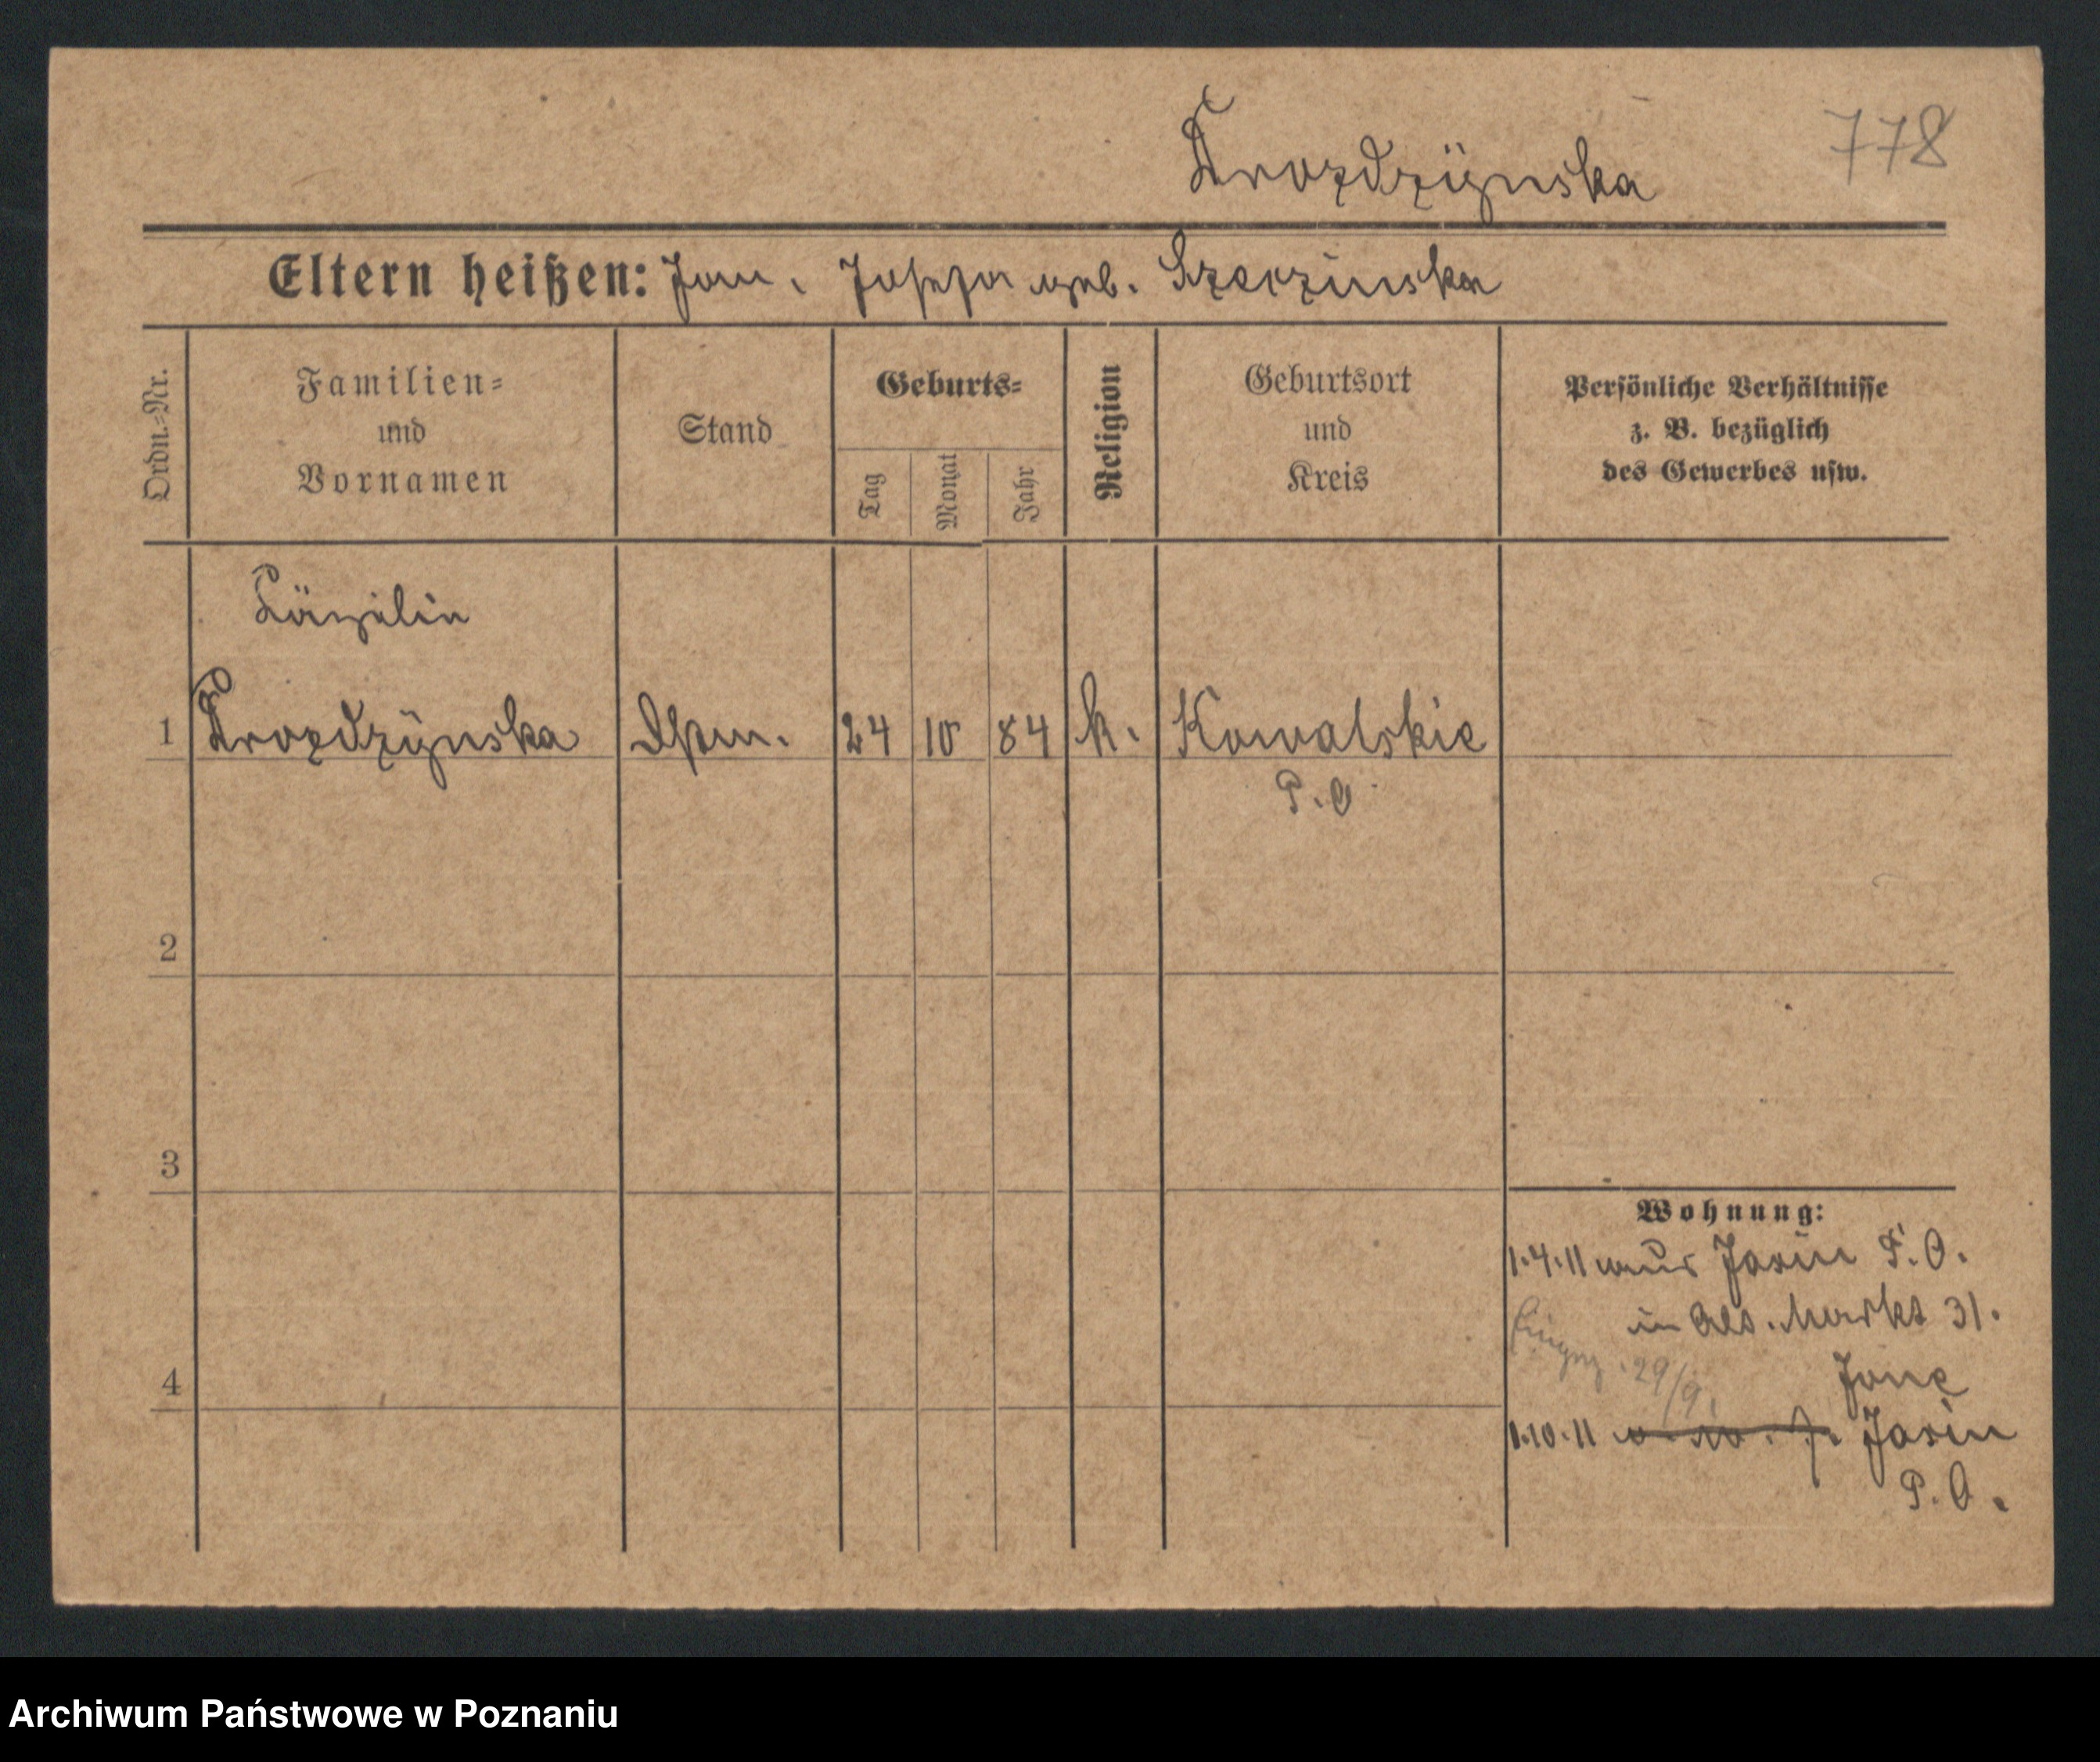 Drozdzÿnska 778
Eltern heißen: Jan, Josefa geb. Szeczinska
Ordn.-Nr. Familien- und Vornamen Stand Geburts- Tag Monat Jahr Religion Geburtsort und Kreis Persönliche Verhältnisse z. B. bezüglich des Gewerbes usw.
Cäzilie
1 Drozdzÿnska 24 10 84 k. Kowalskie
P. O
2
3
Wohnung:
1.4.11 aus Jasin P. O.
in Alt. Markt 31.
29/9.
4
1.10.11 Jasin
P. O.
Archiwum Państwowe w Poznaniu